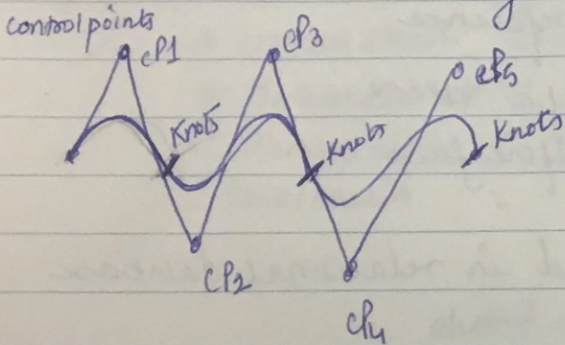 control points
CP1
CP3
CP5
Knots
Knots
Knots
CP2
CP4